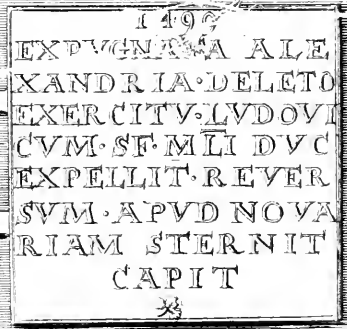 149
EXPVGNATA ALE
XANDRIA·DELETO
EXERCITV·LVDOVI
CVM·SF·MLI DVC
EXPELLIT·REVER
SVM·APVD NOVA
RIAM STERNIT
CAPIT